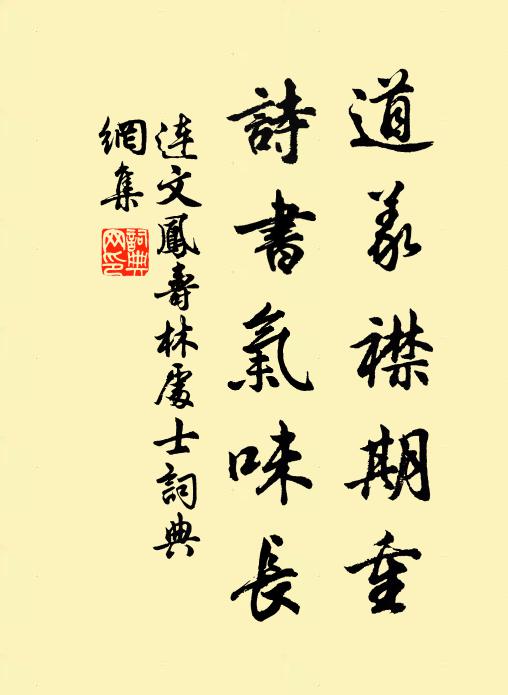 道義襟期重
詩書氣味長
連文鳳壽林處士詞典
網集
詞典網印